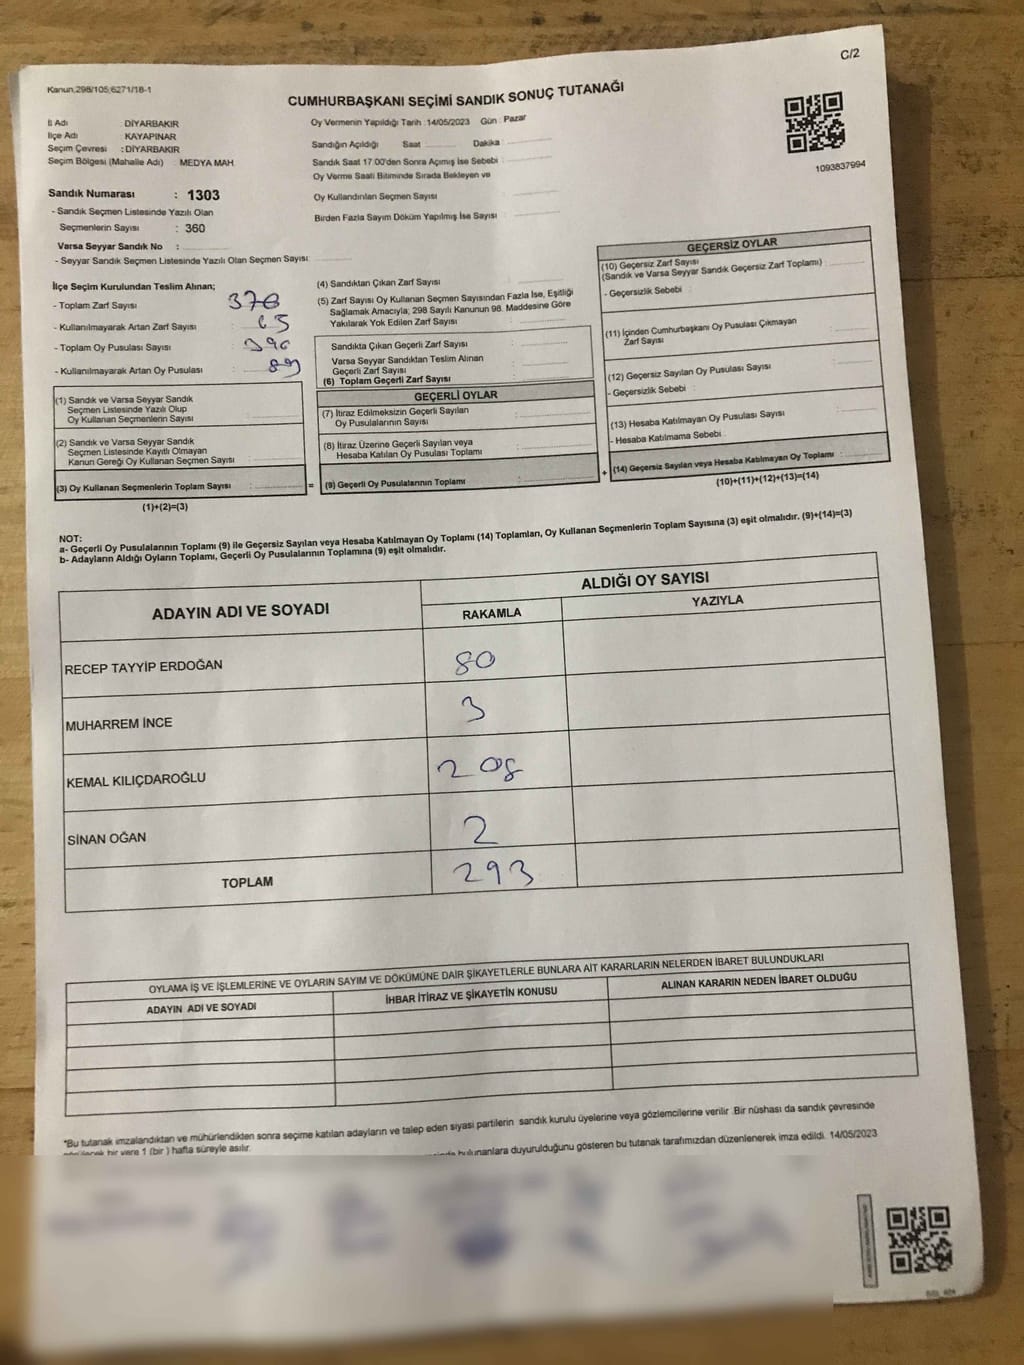 C/2
Kanun,298/105;6271/18-1
CUMHURBAŞKANI SEÇİMİ SANDIK SONUÇ TUTANAĞI
İl Adı : DİYARBAKIR
İlçe Adı : KAYAPINAR
Seçim Çevresi : DİYARBAKIR
Seçim Bölgesi (Mahalle Adı) : MEDYA MAH.
Oy Vermenin Yapıldığı Tarih : 14/05/2023 Gün : Pazar
Sandığın Açıldığı Saat Dakika
Sandık Saat 17:00'den Sonra Açımış İse Sebebi :
Oy Verme Saati Bitiminde Sırada Bekleyen ve
Oy Kullandırılan Seçmen Sayısı :
Birden Fazla Sayım Döküm Yapılmış İse Sayısı :
1093837994
Sandık Numarası : 1303
- Sandık Seçmen Listesinde Yazılı Olan
Seçmenlerin Sayısı : 360
Varsa Seyyar Sandık No :
- Seyyar Sandık Seçmen Listesinde Yazılı Olan Seçmen Sayısı
İlçe Seçim Kurulundan Teslim Alınan;
- Toplam Zarf Sayısı
- Kullanılmayarak Artan Zarf Sayısı :
- Toplam Oy Pusulası Sayısı :
- Kullanılmayarak Artan Oy Pusulası : 89
(1) Sandık ve Varsa Seyyar Sandık
Seçmen Listesinde Yazılı Olup
Oy Kullanan Seçmenlerin Sayısı
(2) Sandık ve Varsa Seyyar Sandık
Seçmen Listesinde Kayıtlı Olmayan
Kanun Gereği Oy Kullanan Seçmen Sayısı
(3) Oy Kullanan Seçmenlerin Toplam Sayısı :
(1)+(2)=(3)
=
(4) Sandıktan Çıkan Zarf Sayısı
(5) Zarf Sayısı Oy Kullanan Seçmen Sayısından Fazla İse, Eşitliği
Sağlamak Amacıyla; 298 Sayılı Kanunun 98. Maddesine Göre
Yakılarak Yok Edilen Zarf Sayısı
Sandıkta Çıkan Geçerli Zarf Sayısı
Varsa Seyyar Sandıktan Teslim Alınan
Geçerli Zarf Sayısı
(6) Toplam Geçerli Zarf Sayısı
GEÇERLİ OYLAR
(7) İtiraz Edilmeksizin Geçerli Sayılan
Oy Pusulalarının Sayısı
(8) İtiraz Üzerine Geçerli Sayılan veya
Hesaba Katılan Oy Pusulası Toplamı
(9) Geçerli Oy Pusulalarının Toplamı
+
GEÇERSİZ OYLAR
(10) Geçersiz Zarf Sayısı
(Sandık ve Varsa Seyyar Sandık Geçersiz Zarf Toplamı)
- Geçersizlik Sebebi :
(11) İçinden Cumhurbaşkanı Oy Pusulası Çıkmayan
Zarf Sayısı
(12) Geçersiz Sayılan Oy Pusulası Sayısı
- Geçersizlik Sebebi :
(13) Hesaba Katılmayan Oy Pusulası Sayısı
- Hesaba Katılmama Sebebi :
(14) Geçersiz Sayılan veya Hesaba Katılmayan Oy Toplamı :
(10)+(11)+(12)+(13)=(14)
NOT:
a- Geçerli Oy Pusulalarının Toplamı (9) ile Geçersiz Sayılan veya Hesaba Katılmayan Oy Toplamı (14) Toplamları, Oy Kullanan Seçmenlerin Toplam Sayısına (3) eşit olmalıdır. (9)+(14)=(3)
b- Adayların Aldığı Oyların Toplamı, Geçerli Oy Pusulalarının Toplamına (9) eşit olmalıdır.
ADAYIN ADI VE SOYADI
ALDIĞI OY SAYISI
RAKAMLA YAZIYLA
RECEP TAYYİP ERDOĞAN 80
MUHARREM İNCE 3
KEMAL KILIÇDAROĞLU 208
SİNAN OĞAN 2
TOPLAM 293
OYLAMA İŞ VE İŞLEMLERİNE VE OYLARIN SAYIM VE DÖKÜMÜNE DAİR ŞİKAYETLERLE BUNLARA AİT KARARLARIN NELERDEN İBARET BULUNDUKLARI
ADAYIN ADI VE SOYADI İHBAR İTİRAZ VE ŞİKAYETİN KONUSU ALINAN KARARIN NEDEN İBARET OLDUĞU
*Bu tutanak imzalandıktan ve mühürlendikten sonra seçime katılan adayların ve talep eden siyasi partilerin sandık kurulu üyelerine veya gözlemcilerine verilir .Bir nüshası da sandık çevresinde
bir yere 1 (bir ) hafta süreyle asılır.
bulunanlara duyurulduğunu gösteren bu tutanak tarafımızdan düzenlenerek imza edildi. 14/05/2023